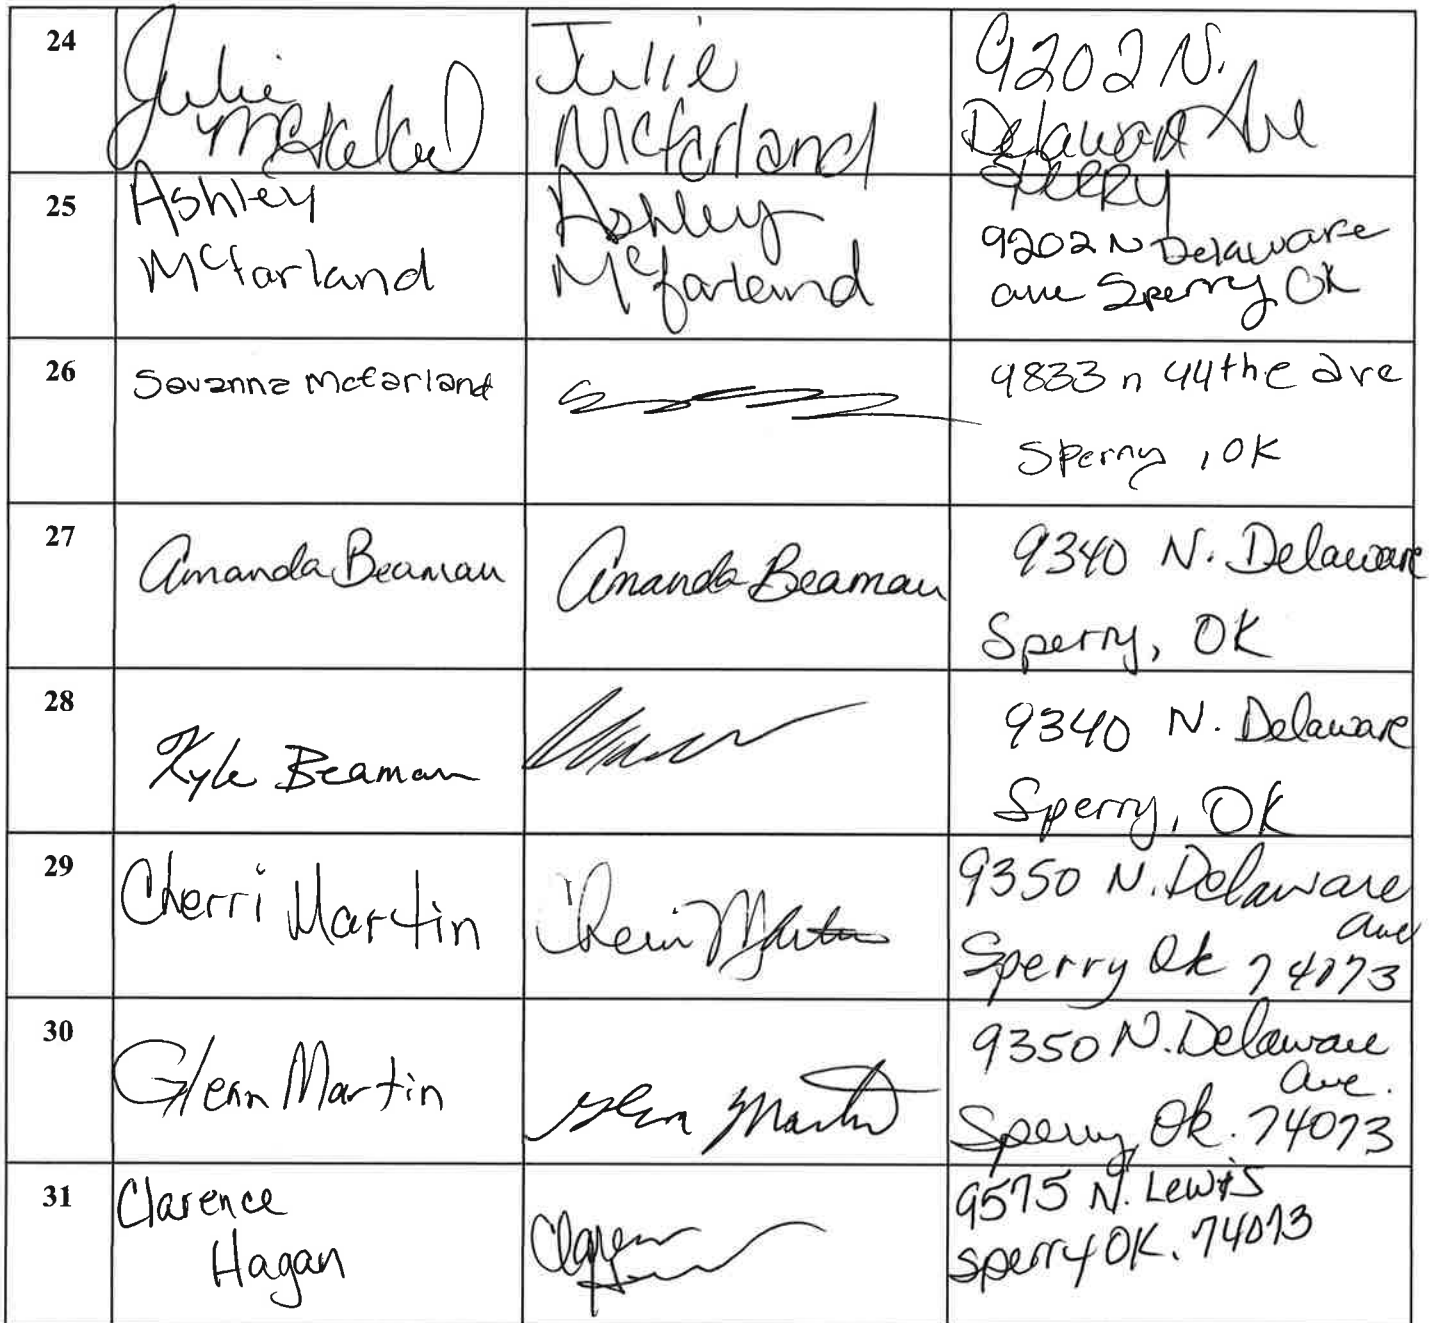 24
Julie
McFarland
Julie
Mcfarland
9202 N.
Delaware Ave
Sperry
25
Ashley
McFarland
Ashley
McFarland
9202 N Delaware
ave Sperry OK
26
Savanna Mcfarland
9833 n 44the ave
Sperry, OK
27
Amanda Beaman
Amanda Beaman
9340 N. Delaware
Sperry, OK
28
Kyle Beaman
9340 N. Delaware
Sperry, OK
29
Cherri Martin
Cherri Martin
9350 N. Delaware
Ave
Sperry Ok 74073
30
Glenn Martin
Glenn Martin
9350 N. Delaware
Ave.
Sperry, Ok. 74073
31
Clarence
Hagan
Clarence
9575 N. Lewis
Sperry OK. 74073